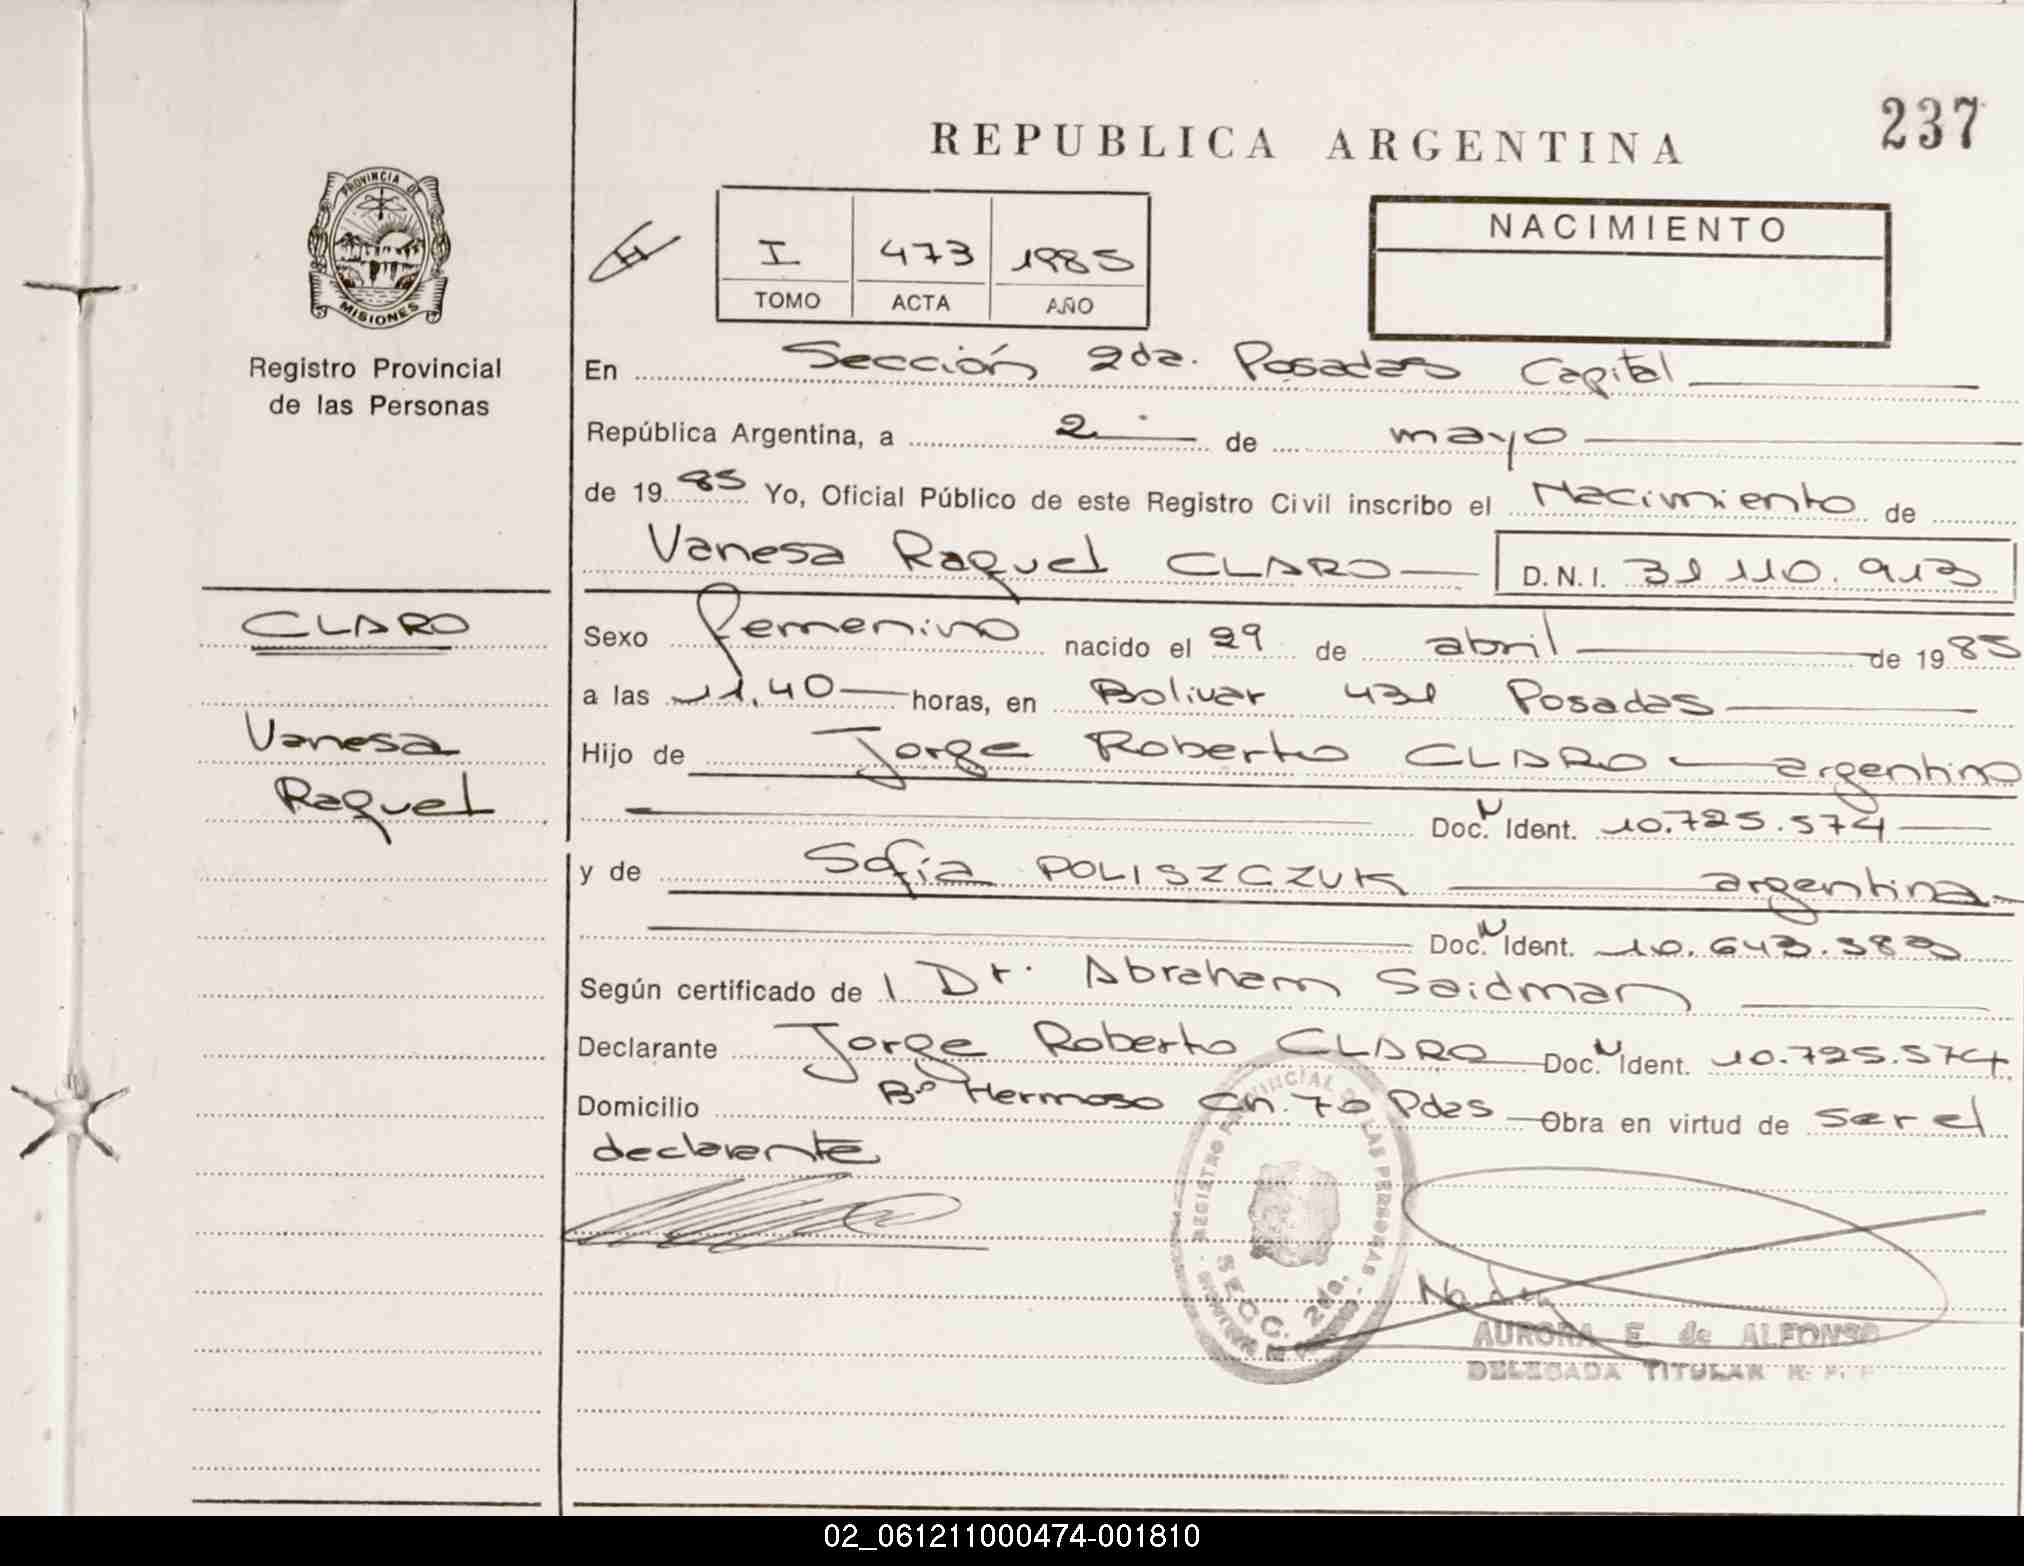 237
REPUBLICA ARGENTINA
PROVINCIA DE
MISIONES
Registro Provincial
de las Personas
I 473 1985
TOMO ACTA AÑO
NACIMIENTO
En Sección 2da. Posadas Capital
República Argentina, a 2 de mayo
de 1985 Yo, Oficial Público de este Registro Civil inscribo el Nacimiento de
Vanesa Raquel CLARO D.N.I. 31 110.913
CLARO
Vanesa
Raquel
Sexo femenino nacido el 29 de abril de 1985
a las 11,40 horas, en Bolivar 431 Posadas
Hijo de Jorge Roberto CLARO argentino
Doc. N Ident. 10.725.574
y de Sofía POLISZCZUK argentina
Doc. N Ident. 10.643.383
Según certificado de l Dr. Abraham Saidman
Declarante Jorge Roberto CLARO Doc. N Ident. 10.725.574
Domicilio Bº Hermoso Ch. 70 Pdas Obra en virtud de ser el
declarante
REGISTRO PROVINCIAL DE LAS PERSONAS
SECC. 2da.
AURORA E. de ALFONSO
DELEGADA TITULAR R. P. P.
02_061211000474-001810